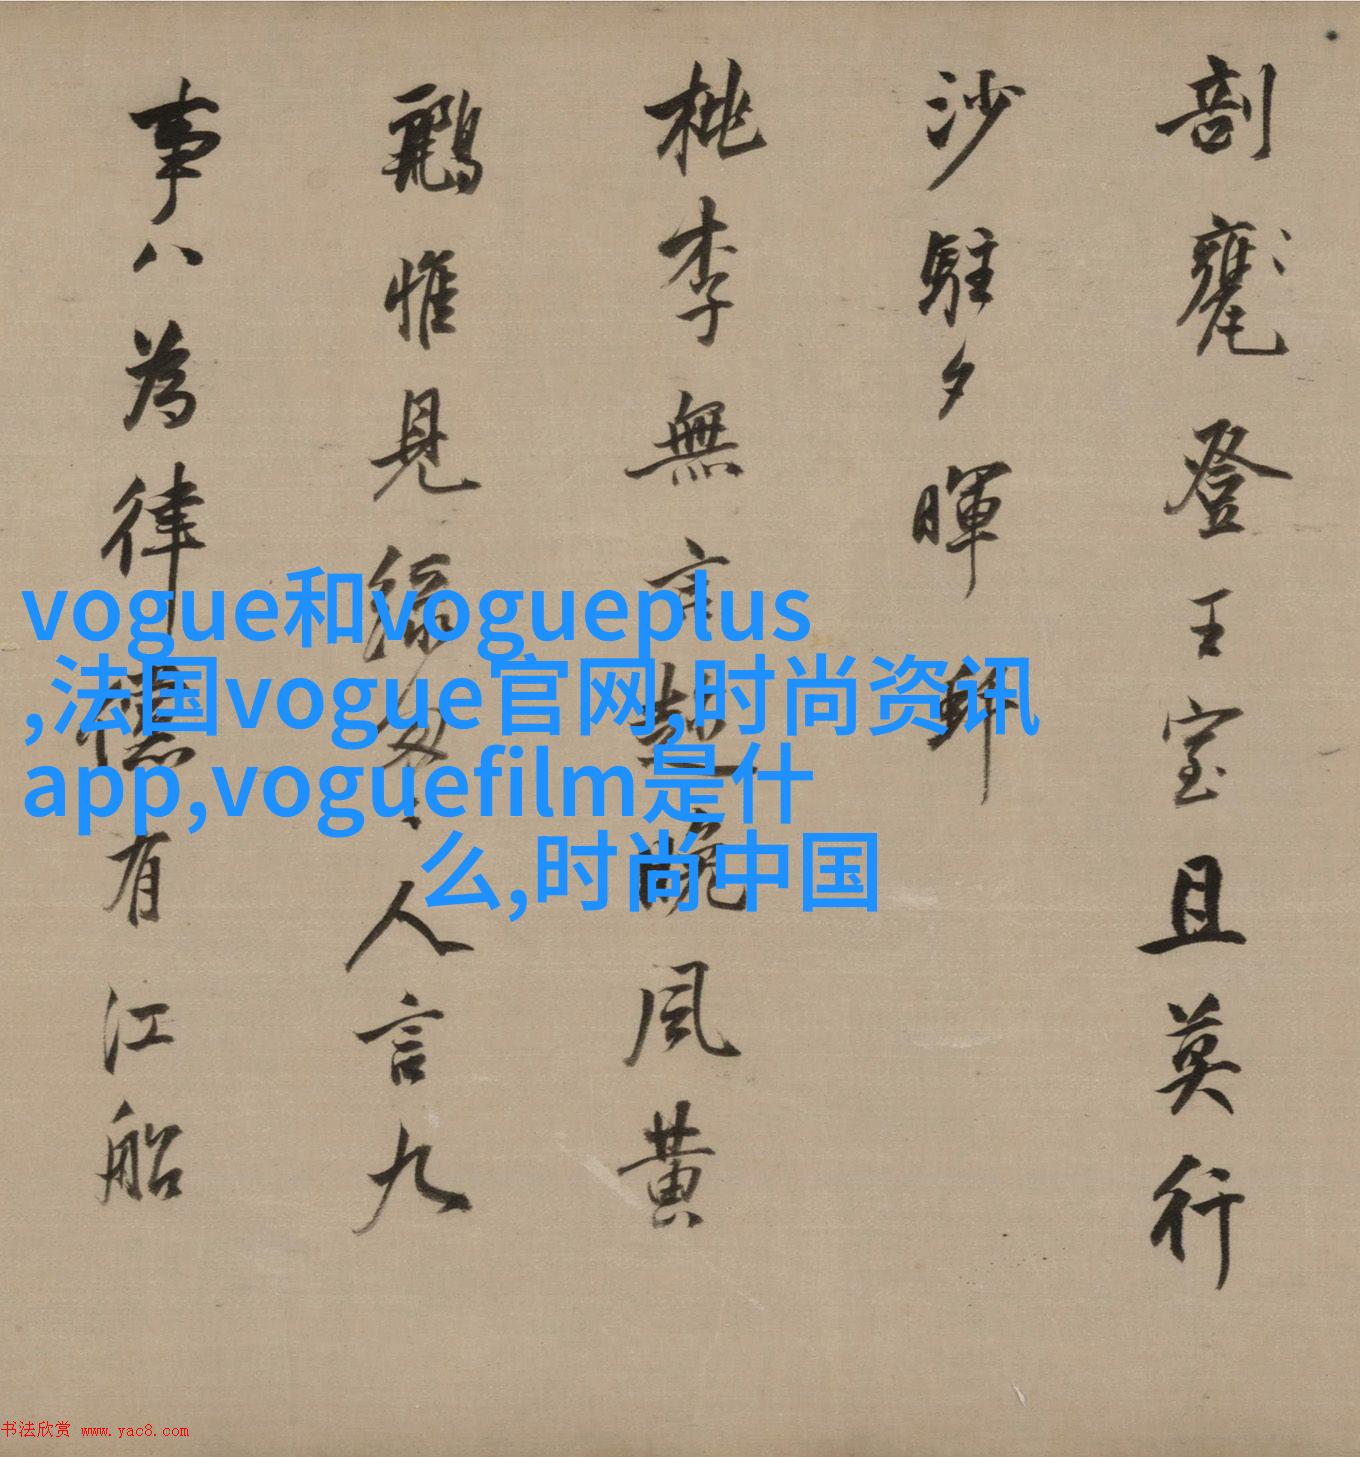 剖甕登王室且莫行
沙駐夕暉
桃李無言晚風黃
鸝惟見綠匆人言九
事八為律有江船
vogue和vogueplus
,法国vogue官网,时尚资讯
app,voguefilm是什
么,时尚中国
书法欣赏 www.yac8.com